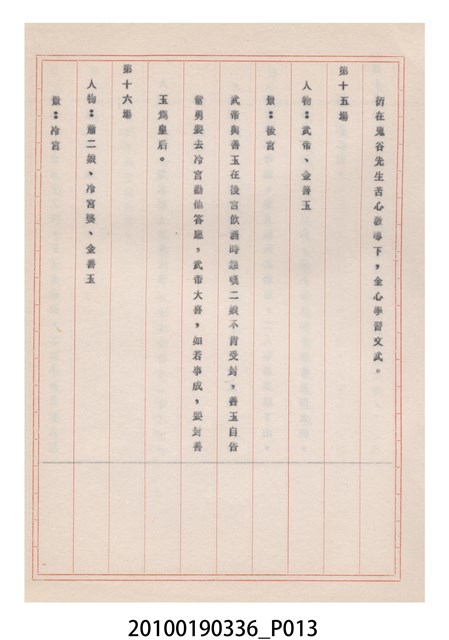 衍在鬼谷先生苦心教導下，全心學習文武。
第十五場
人物：武帝、金善玉
景：後宮
武帝與善玉在後宮飲酒時嘆二娘不肯受封，善玉自告
奮勇要去冷宮勸他答應，武帝大喜，如若事成，要封善
玉為皇后。
第十六場
人物：蕭二娘、冷宮婆、金善玉
景：冷宮
20100190336_P013